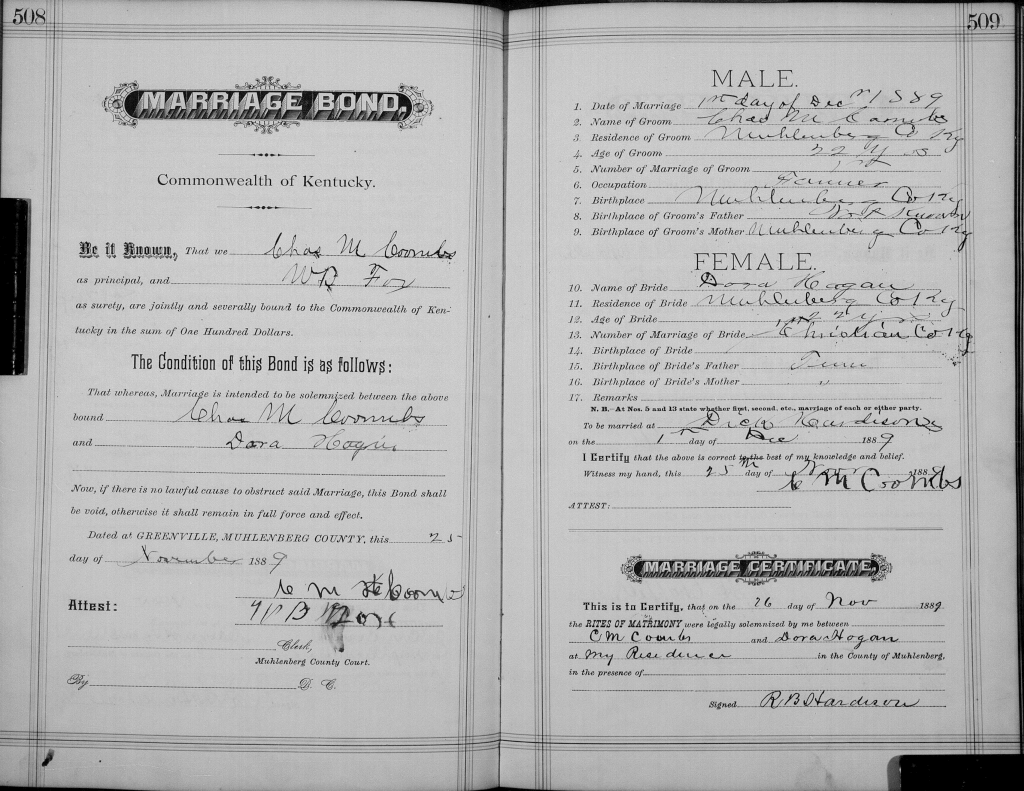 508
MARRIAGE BOND.
Commonwealth of Kentucky.
Be it Known, That we Chas M Coombs
as principal, and WB Fox
as surety, are jointly and severally bound to the Commonwealth of Ken-
tucky in the sum of One Hundred Dollars.
The Condition of this Bond is as follows:
That whereas, Marriage is intended to be solemnized between the above
bound Chas M Coombs
and Dora Hogan
Now, if there is no lawful cause to obstruct said Marriage, this Bond shall
be void, otherwise it shall remain in full force and effect.
Dated at GREENVILLE, MUHLENBERG COUNTY, this 25
day of November 1889
C M Coombs
Attest: W B
Clerk,
Muhlenberg County Court.
By D. C.
509
MALE.
1. Date of Marriage 1st day of Dec 1889
2. Name of Groom Chas M Coombs
3. Residence of Groom Muhlenberg Co Ky
4. Age of Groom 22 yrs
5. Number of Marriage of Groom 1st
6. Occupation Farmer
7. Birthplace Muhlenberg Co Ky
8. Birthplace of Groom's Father Not Known
9. Birthplace of Groom's Mother Muhlenberg Co Ky
FEMALE.
10. Name of Bride Dora Hogan
11. Residence of Bride Muhlenberg Co Ky
12. Age of Bride
13. Number of Marriage of Bride 1st Christian Co Ky
14. Birthplace of Bride
15. Birthplace of Bride's Father Tenn
16. Birthplace of Bride's Mother "
17. Remarks
N. B.—At Nos. 5 and 13 state whether first, second, etc., marriage of each or either party.
To be married at Dick Hardisons
on the 1st day of Dec 1889
I Certify that the above is correct to the best of my knowledge and belief.
Witness my hand, this 25th day of Nov 188
C M Coombs
ATTEST:
MARRIAGE CERTIFICATE.
This is to Certify, that on the 26 day of Nov 1889
the RITES OF MATRIMONY were legally solemnized by me between
C M Combs and Dora Hogan
at my Residence in the County of Muhlenberg,
in the presence of
Signed R B Hardison